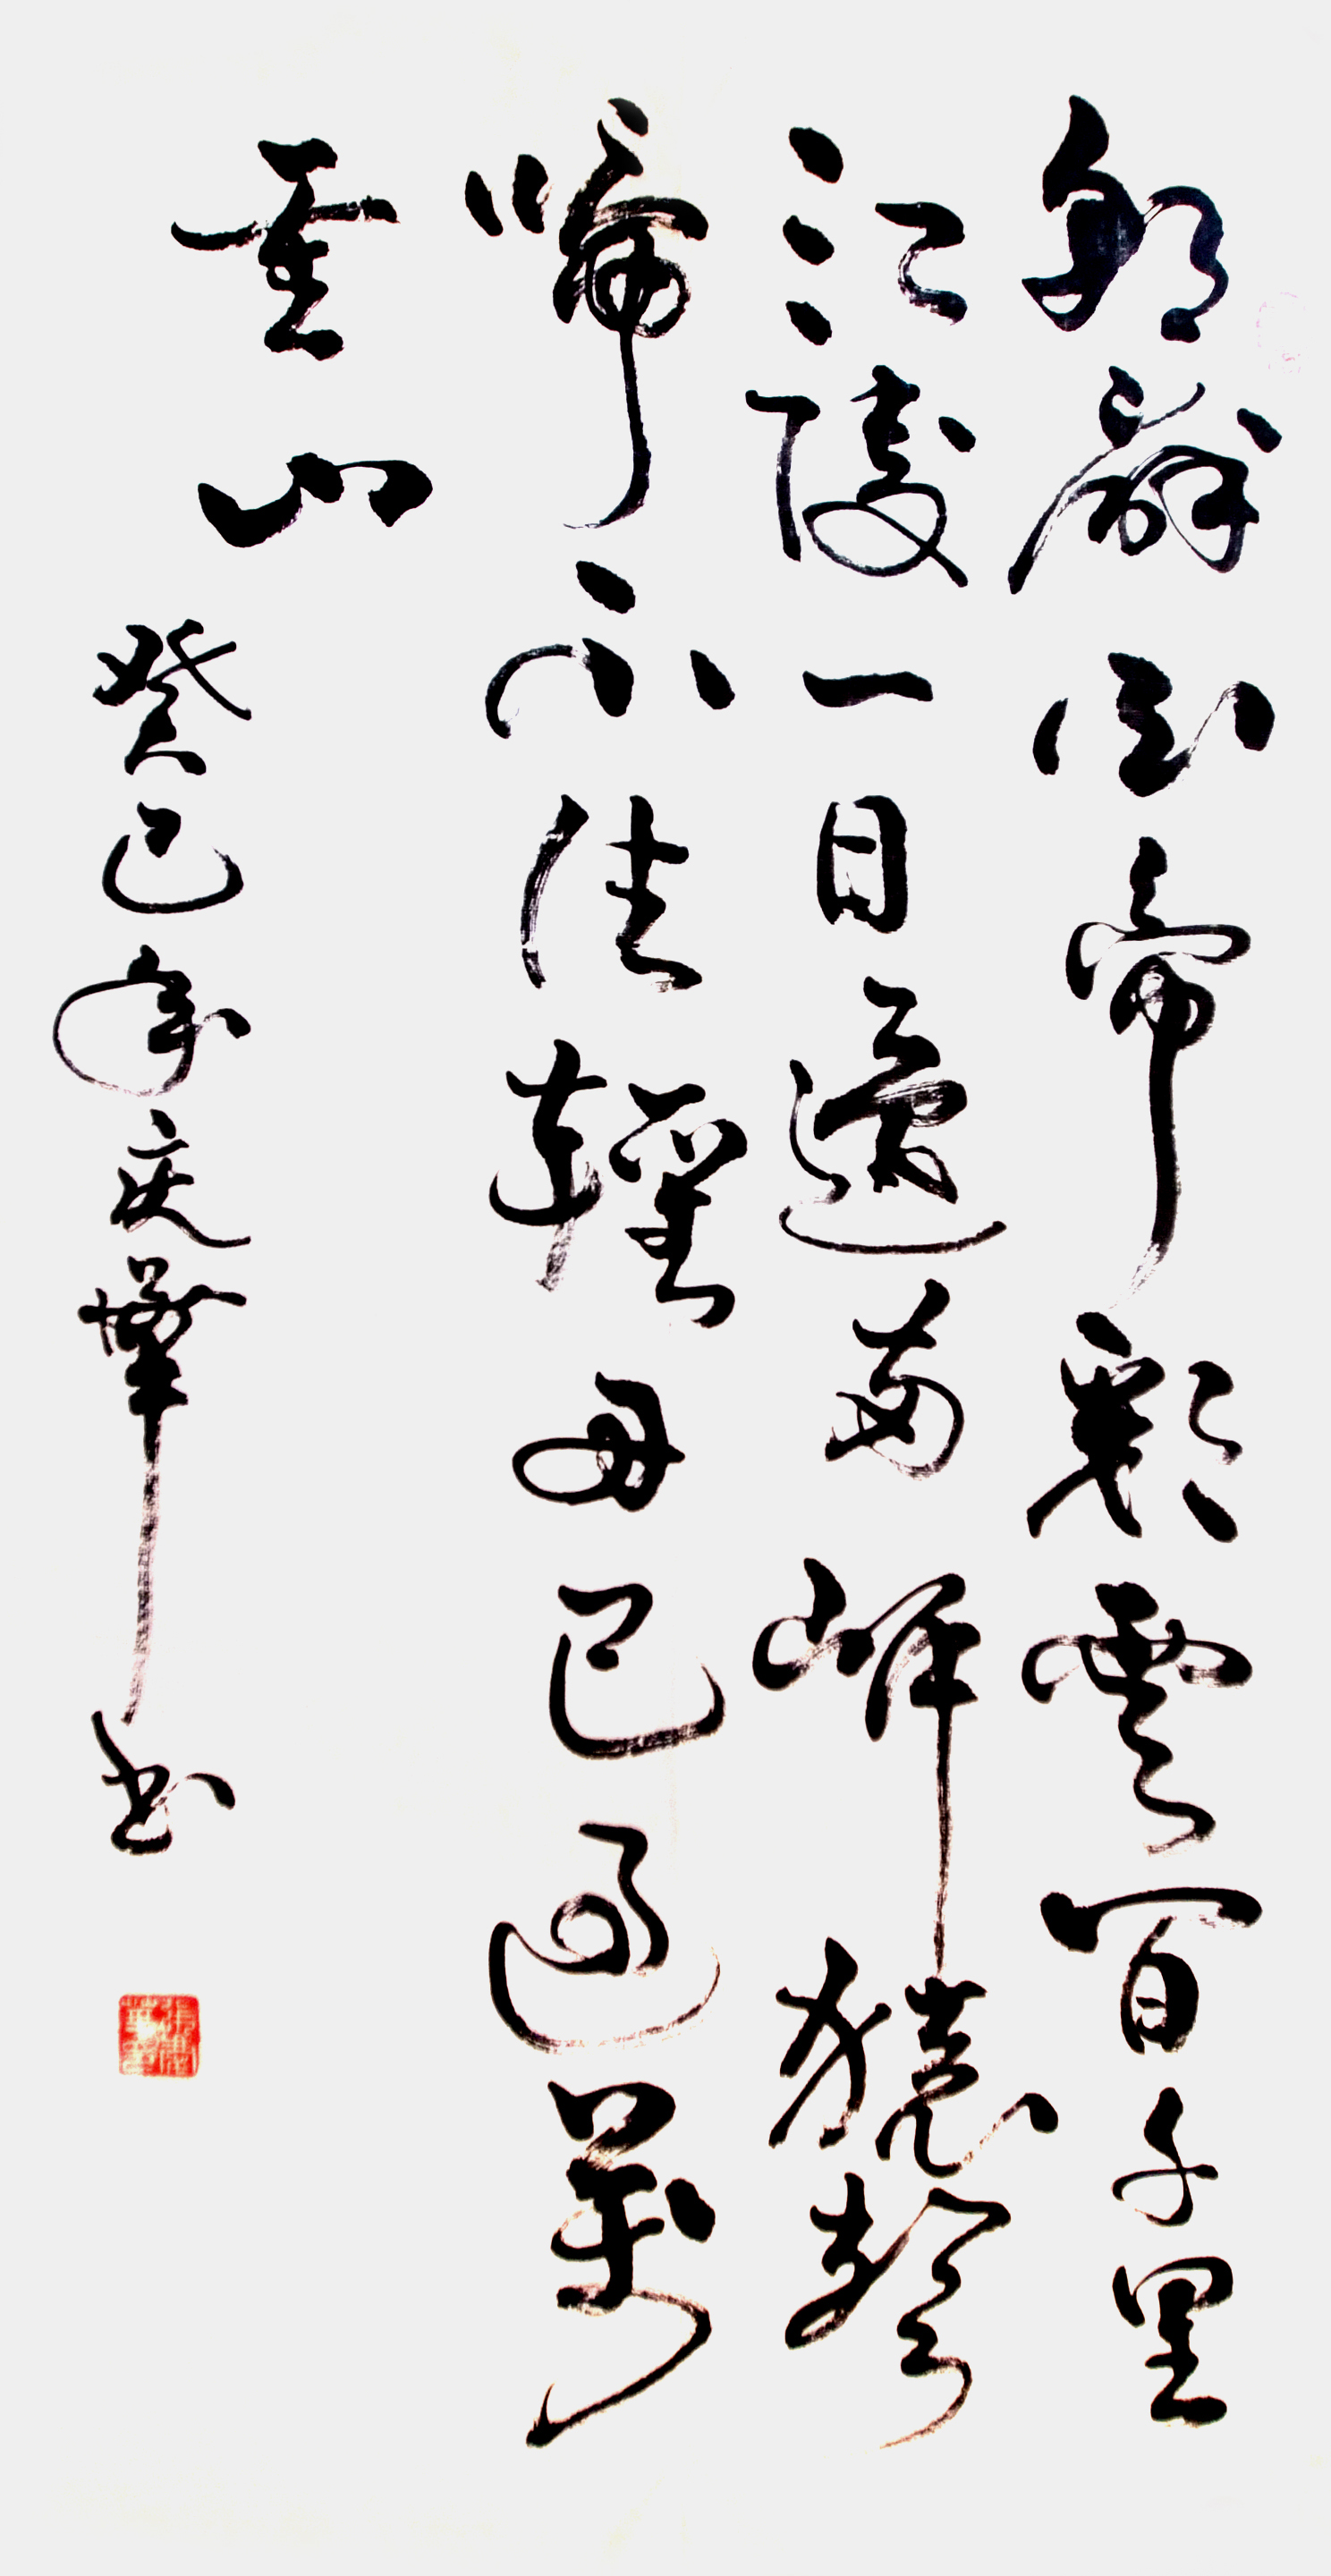 朝辭白帝彩雲間千里
江陵一日還兩岸猿聲
啼不住輕舟已過萬
重山
癸巳年庆華书